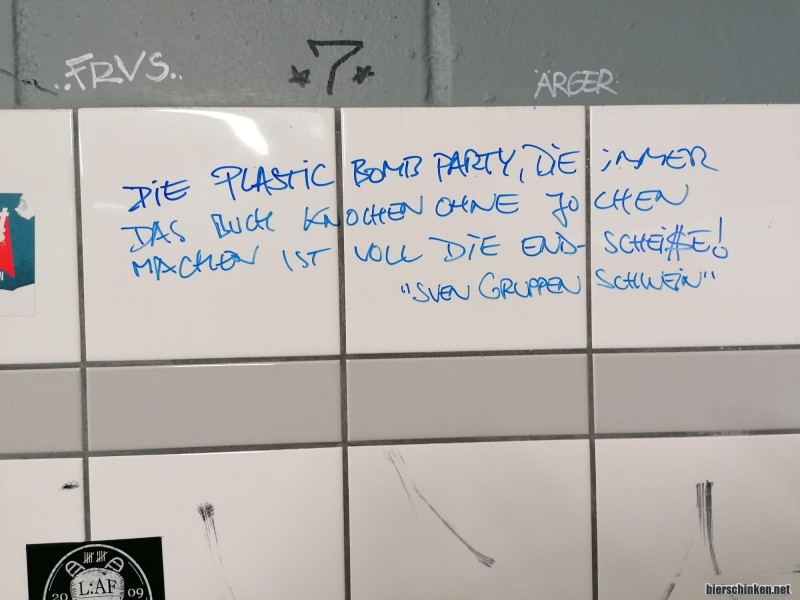 ..FRVS..
*7*
ÄRGER
DIE PLASTIC BOMB PARTY, DIE IMMER
DAS BUCH KNOCHEN OHNE JOCHEN
MACHEN IST VOLL DIE END-SCHEI$E!
"SVEN GRUPPEN SCHWEIN"
L:AF
20 09
bierschinken.net